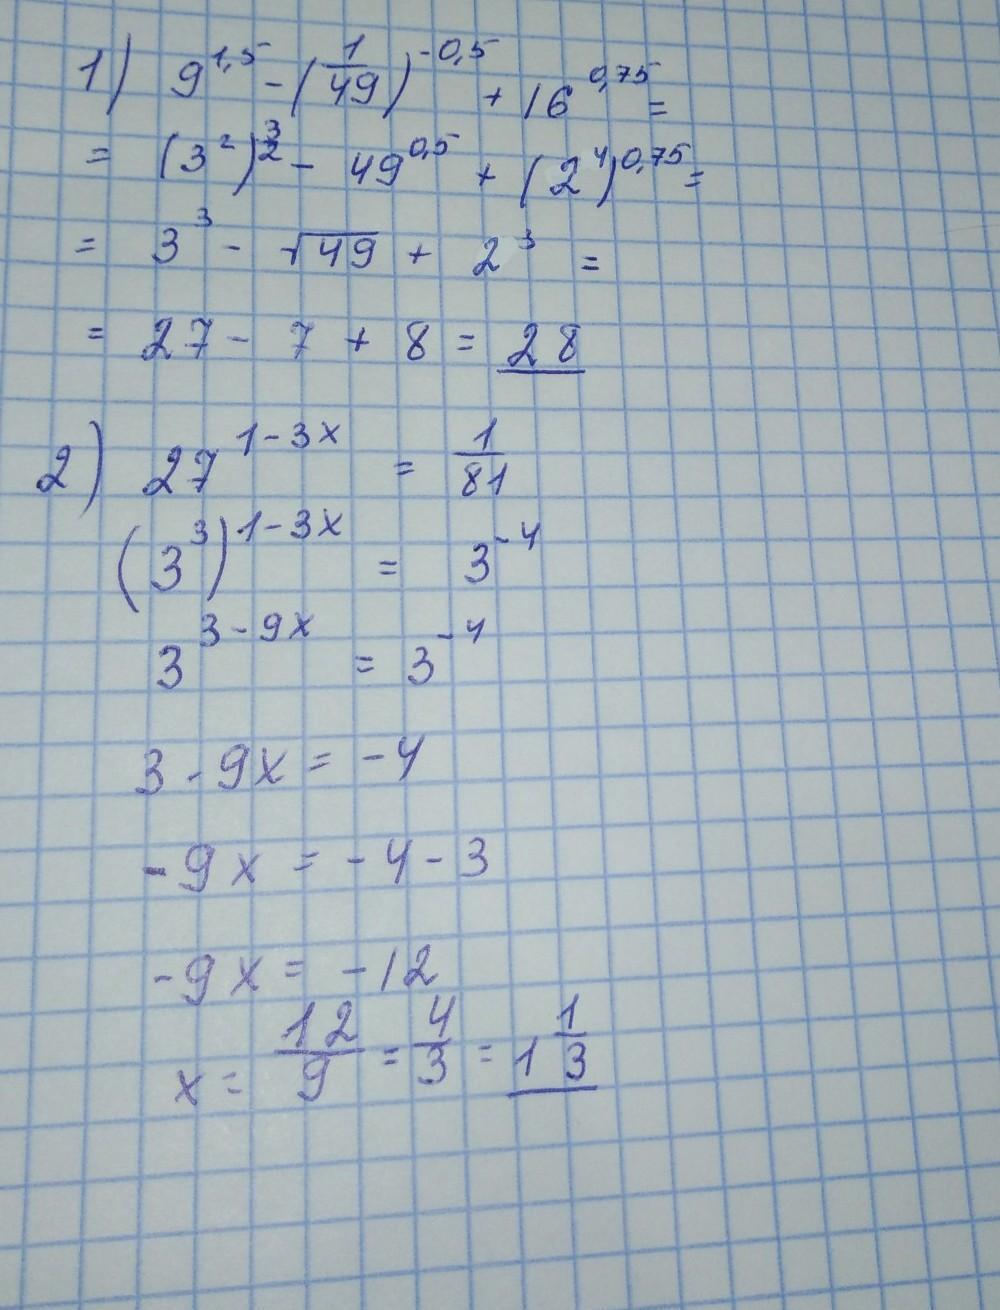 1) 9^1,5 - (1/49)^-0,5 + 16^0,75 =
= (3^2)^3/2 - 49^0,5 + (2^4)^0,75 =
= 3^3 - √49 + 2^3 =
= 27 - 7 + 8 = 28
2) 27^1-3x = 1/81
(3^3)^1-3x = 3^-4
3^3-9x = 3^-4
3 - 9x = -4
-9x = -4-3
-9x = -12
x = 12/9 = 4/3 = 1 1/3